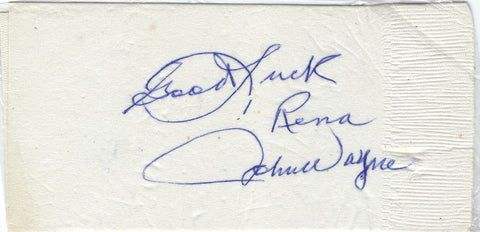 Good Luck
! Rena
John Wayne